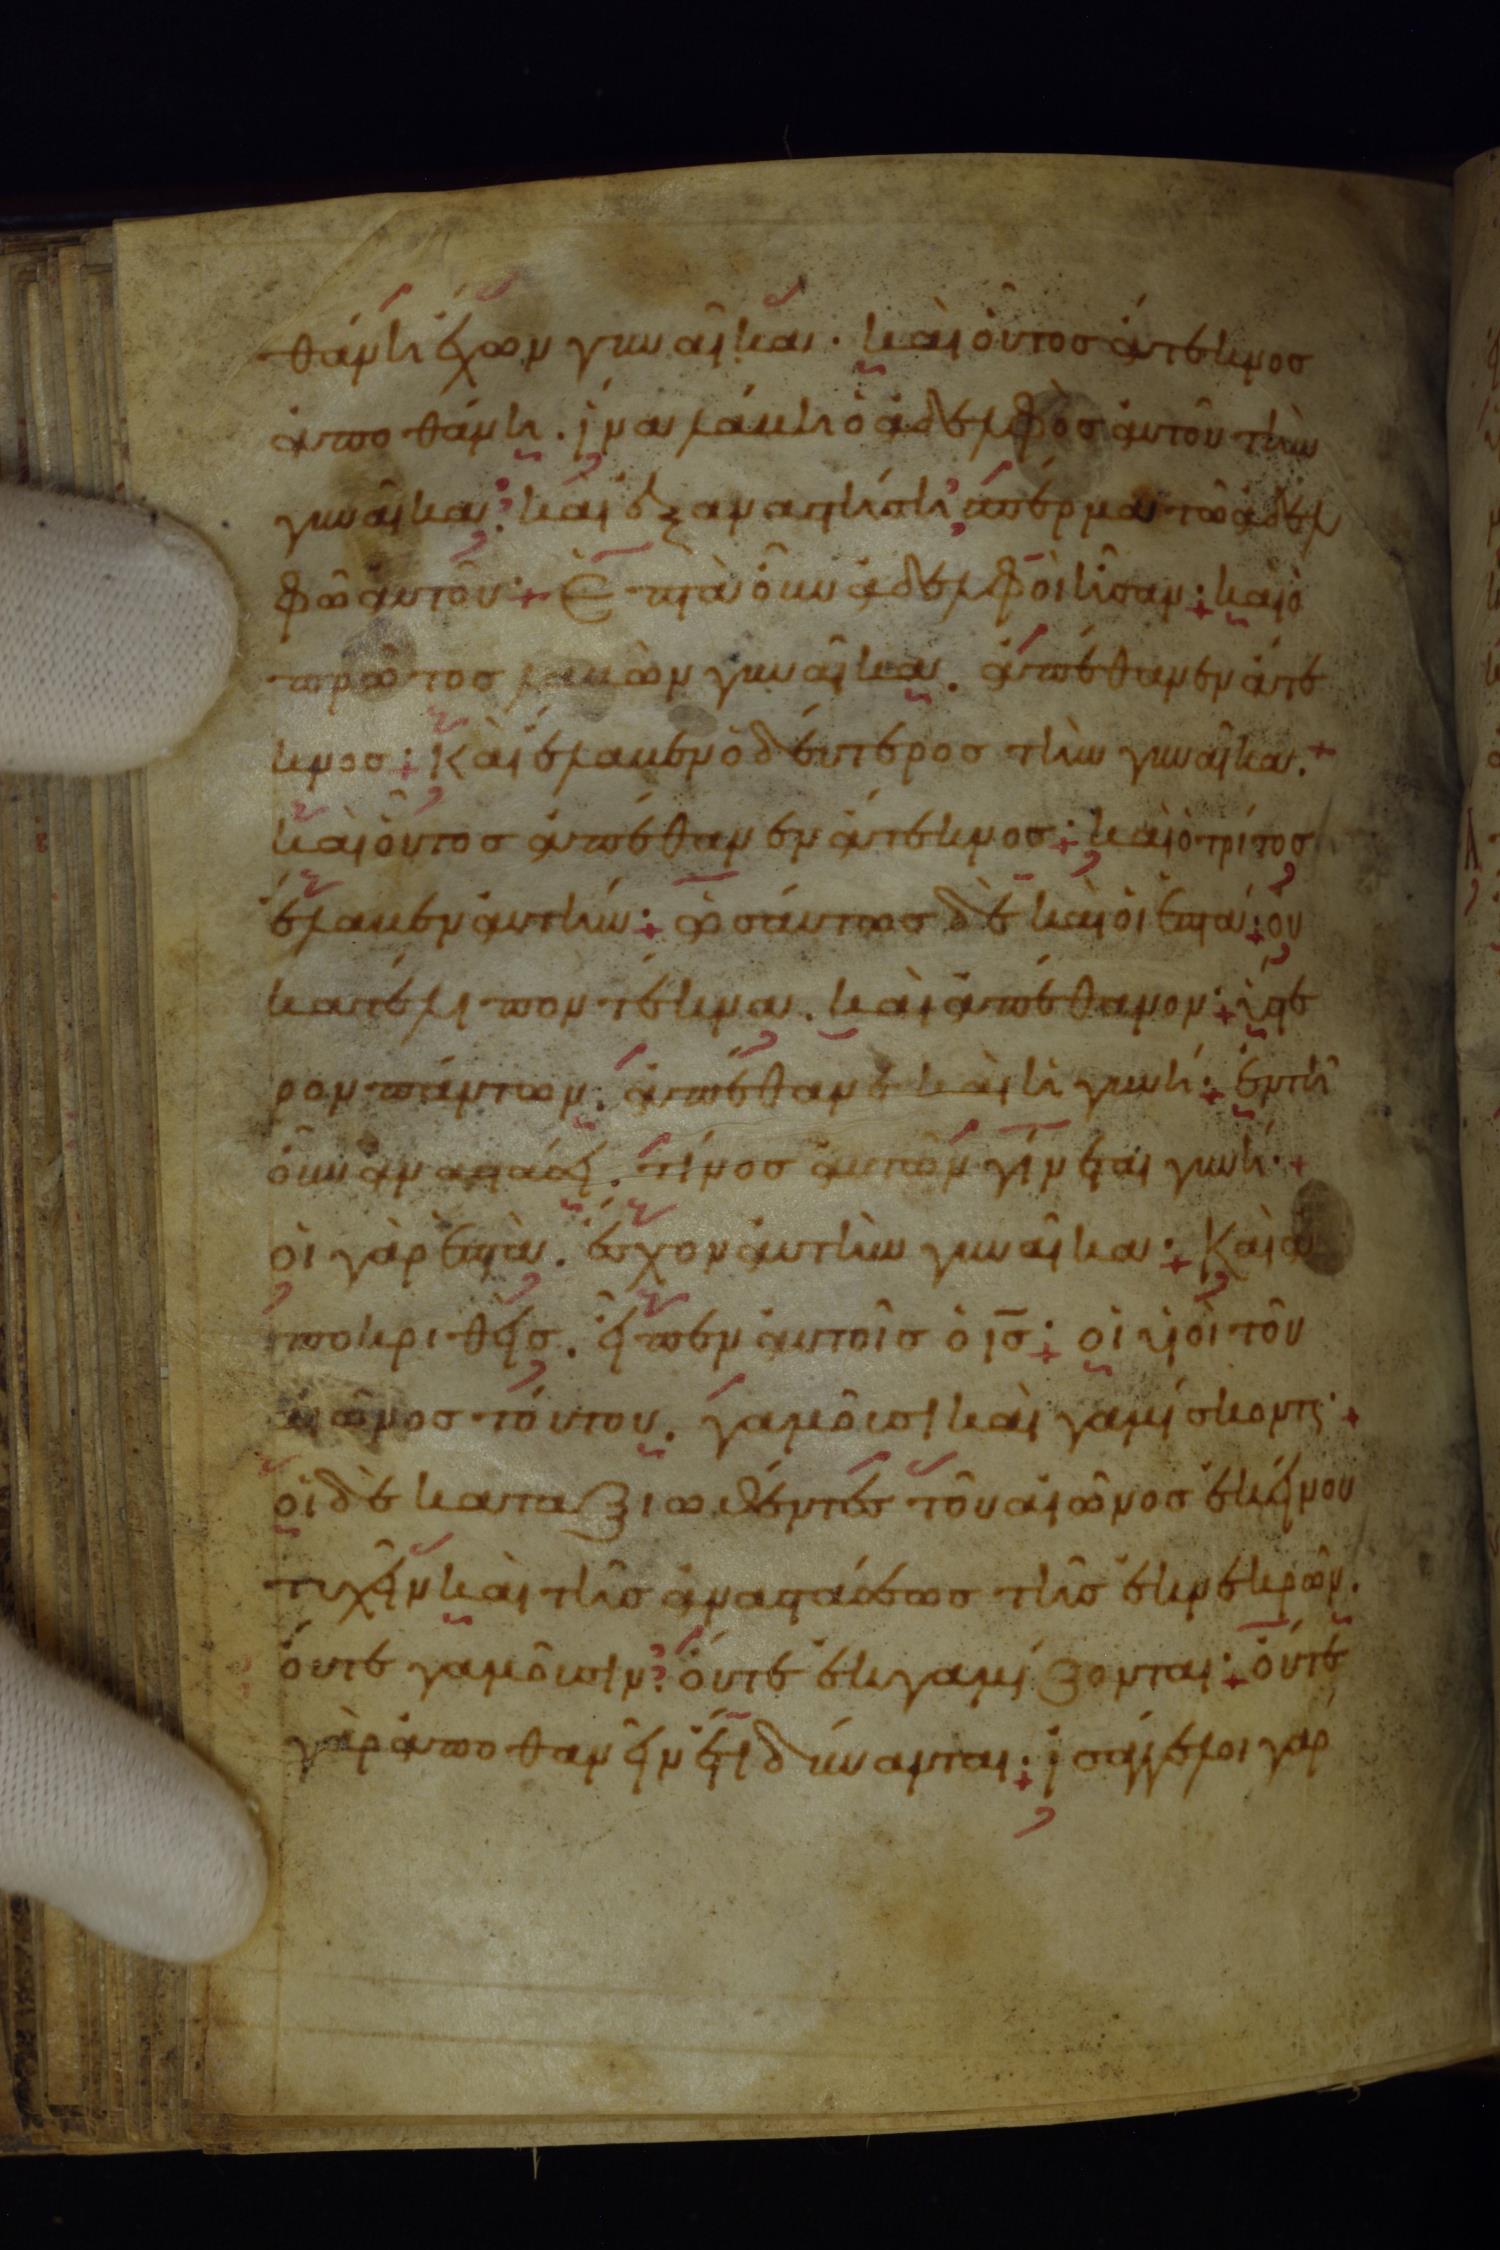 θάνη ἔχων γυναῖκα. καὶ οὗτος ἄτεκνος
ἀποθάνη. ἵνα λάβη ὁ ἀδελφὸς αὐτοῦ τὴν
γυναῖκα. καὶ ἐξαναστήση σπέρμα τῶ ἀδελ
φῶ αὐτοῦ· Ἑπτὰ οὖν ἀδελφοὶ ἦσαν· καὶ ὁ
πρῶτος λαβὼν γυναῖκα. ἀπέθανεν ἄτε
κνος· Καὶ ἔλαβεν ὁ δεύτερος τὴν γυναῖκα.
καὶ οὗτος ἀπέθανεν ἄτεκνος· καὶ ὁ τρίτος
ἔλαβεν αὐτήν· ὡσάυτως δὲ καὶ οἱ ἑπτά· οὐ
κατέλιπον τέκνα. καὶ ἀπέθανον· ὕστε
ρον πάντων. ἀπέθανε καὶ ἡ γυνή· ἐν τῆ
οὖν ἀναστάσει. τίνος αὐτῶν γίνεται γυνή·
οἱ γὰρ ἑπτὰ. ἔσχον αὐτὴν γυναῖκα· Καὶ ἀ
ποκριθεὶς. εἶπεν αὐτοῖς ὁ ις· οἱ υἱοὶ τοῦ
αἰῶνος τούτου. γαμοῦσι καὶ γαμίσκοντ·
οἱ δὲ καταξιωθέντες τοῦ αἰῶνος ἐκείνου
τυχεῖν καὶ τῆς ἀναστάσεως τῆς ἐκ νεκρῶν.
οὔτε γαμοῦσιν. οὔτε ἐκγαμίζονται· οὔτε
γὰρ ἀποθανεῖν ἔτι δύνανται· ἰσάγγελοι γάρ